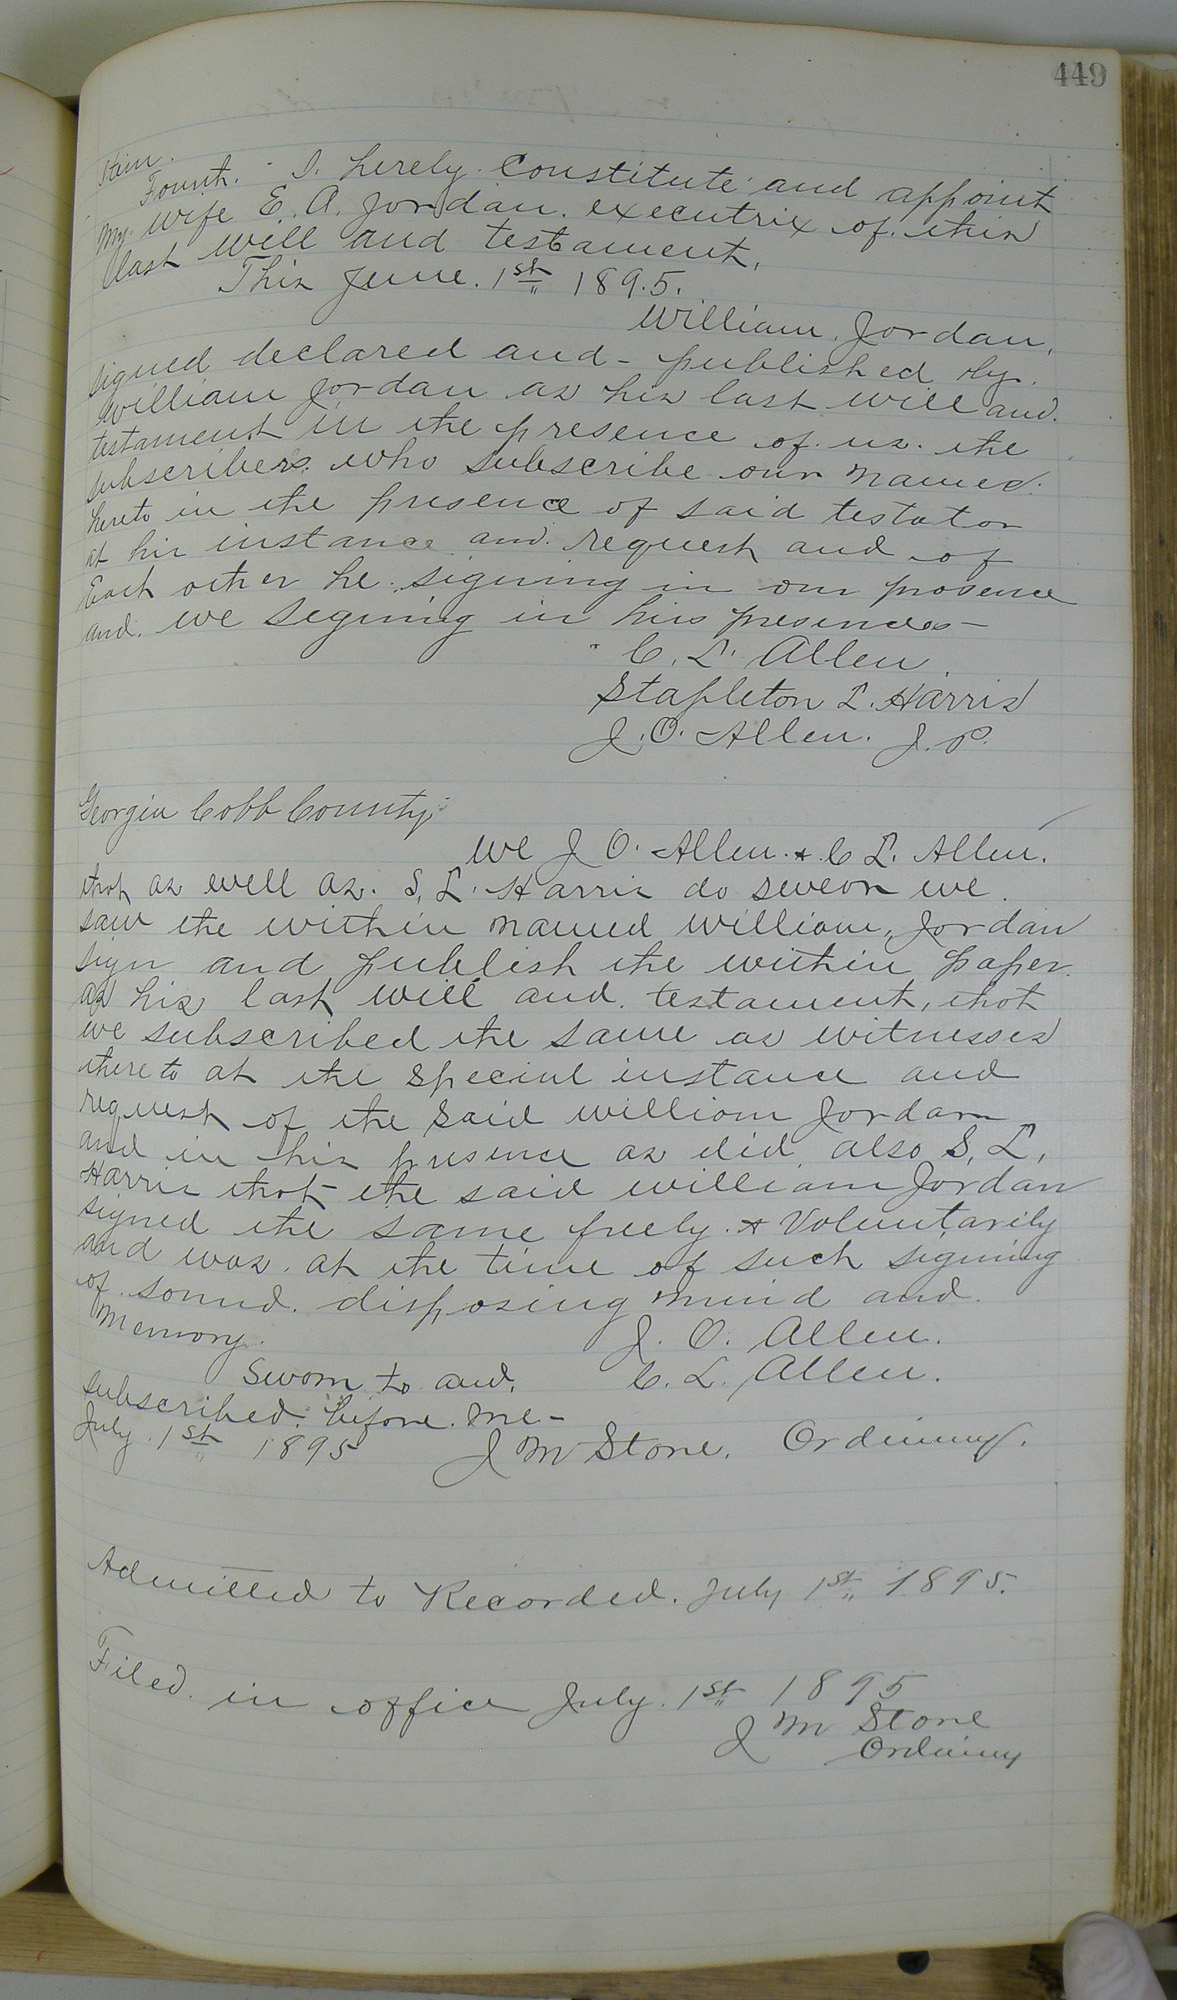 449
Item.
Fourth. I. hereby Constitute and appoint
my wife E. A. Jordan. executrix of. this
last will and testament.
This June. 1st 1895.
William. Jordan.
Signed declared and - published by.
William Jordan as his last will and.
testament in the presence of us. the
subscribers. who subscribe our names.
hereto in the presence of said testator
at his instance and. request and of
Each other he. signing in our presence
and. we signing in his presence -
C. L. Allen.
Stapleton L. Harris
J. O. Allen. J. P.
Georgia Cobb County.
we J O. Allen. & C L. Allen.
that as well as. S. L. Harris do swear we.
saw the within named William. Jordan
sign and publish the within paper.
as his last will and. testament, that
we subscribed the same as witnesses
thereto at the special instance and
request of the said William Jordan
and in his presence as did. also S. L.
Harris that the said William Jordan
signed the same freely. & Voluntarily
and was. at the time of such signing
of. sound. disposing mind and.
Memory.
J. O. Allen.
Sworn to and.
C. L. Allen.
subscribed. before. me -
July. 1st 1895
J M Stone. Ordinary.
Admitted to Recorded. July 1st 1895.
Filed. in office July. 1st 1895
J M Stone
Ordinary